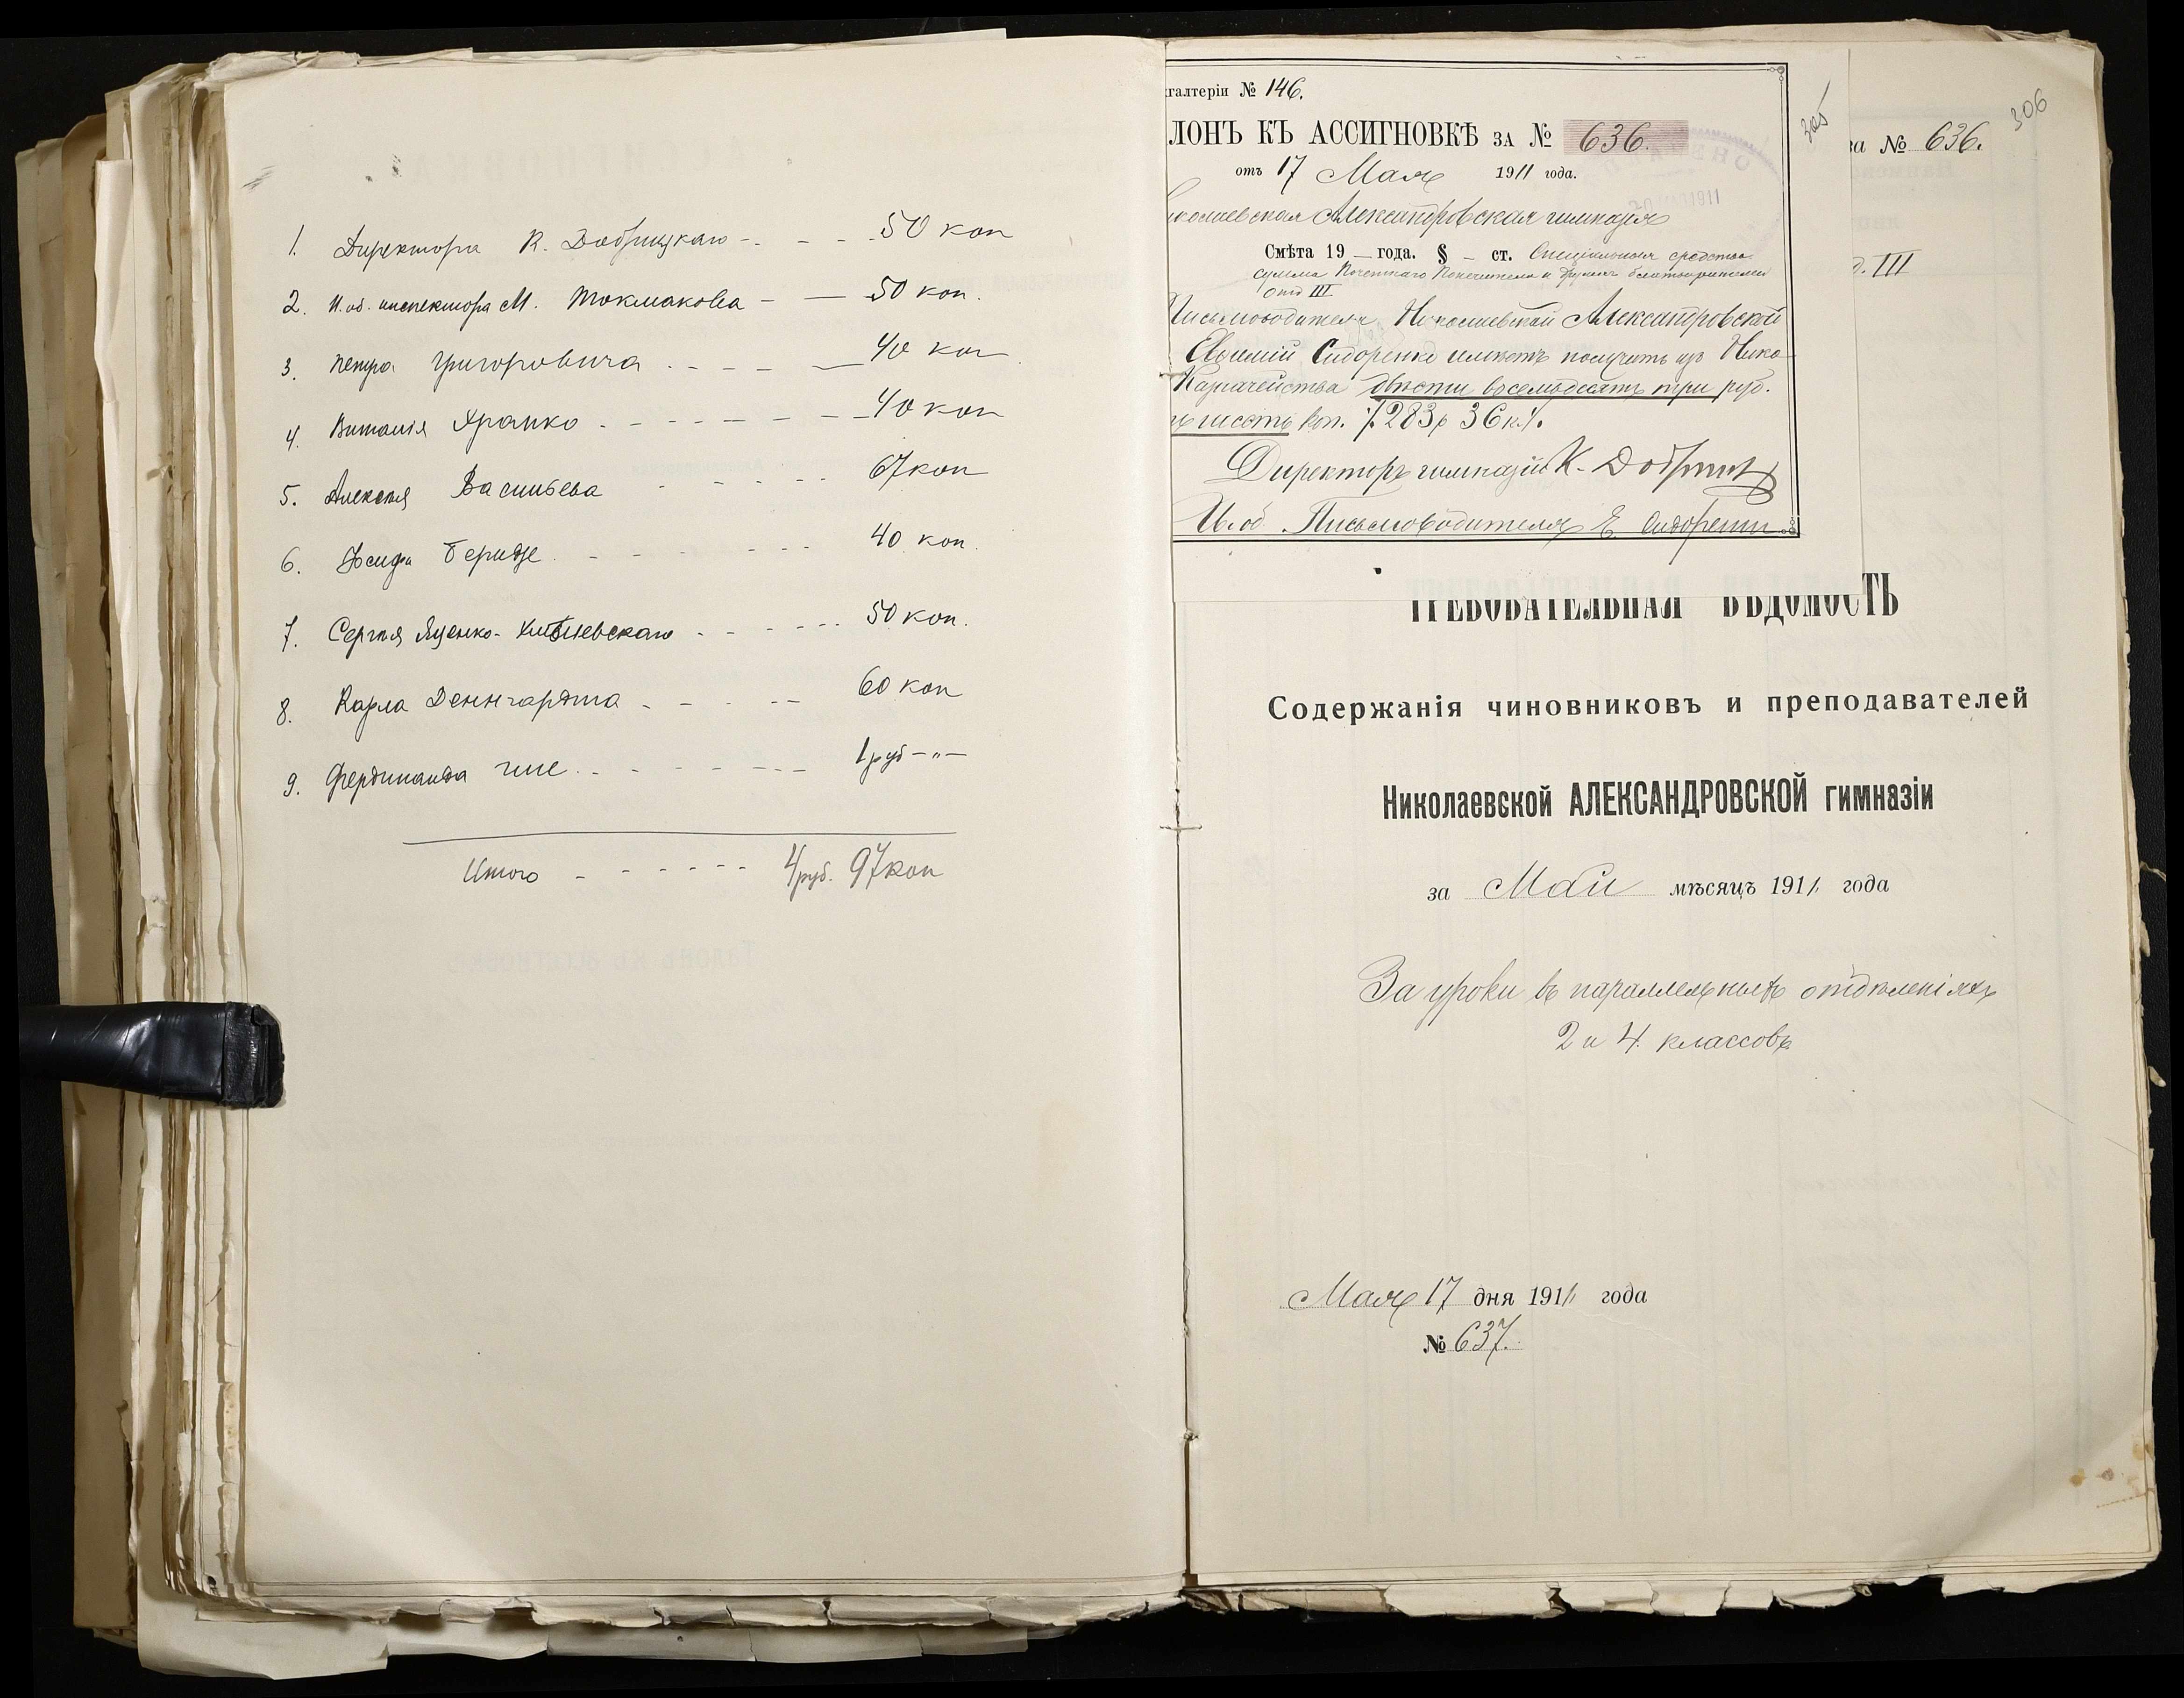 1. Директора К. Добрицкаго - - - 50 коп
2. И. об. инспектора М. Токмакова - — 50 коп.
3. Петра Григоровича - - - — 40 коп.
4. Виталія Храпко - - - - - - - 40 коп
5. Алексѣя Васильева - - - - - 67 коп
6. Іосифа Беридзе - - - - - - 40 коп.
7. Сергѣя Яценко- - - - - - 50 коп.
8. Карла Деннгардта - - - - - 60 коп
9. Фердинанда Гине - - - - - - 1 руб - " -
Итого - - - - - - - 4 руб. 97 коп
галтеріи № 146.
ЛОНЪ КЪ АССИГНОВКѢ ЗА № 636.
отъ 17 Мая 1911 года.
иколаевская Александровская гимназія
Смѣта 19 — года. § - ст. Спеціальныя средства
сумма Почетнаго Попечителя и других благотворителей
отд III
Письмоводитель Николаевской Александровской
Евѳимій Сидоренко имѣетъ получить изъ Нико-
Казначейства двѣсти восемьдесятъ три руб.
ть шесть коп. 283 р 36 к.
Директоръ гимназіи К. Добриц
И. об. Письмоводителя Е. Сидоренко
305
306
за № 636.
д. III
ТРЕБОВАТЕЛЬНАЯ ВѢДОМОСТЬ
Содержанія чиновниковъ и преподавателей
Николаевской АЛЕКСАНДРОВСКОЙ гимназіи
за Май мѣсяцъ 1911 года
За уроки въ параллельныхъ отдѣленіяхъ
2 и 4 классовъ
Мая 17 дня 1911 года
№ 637.